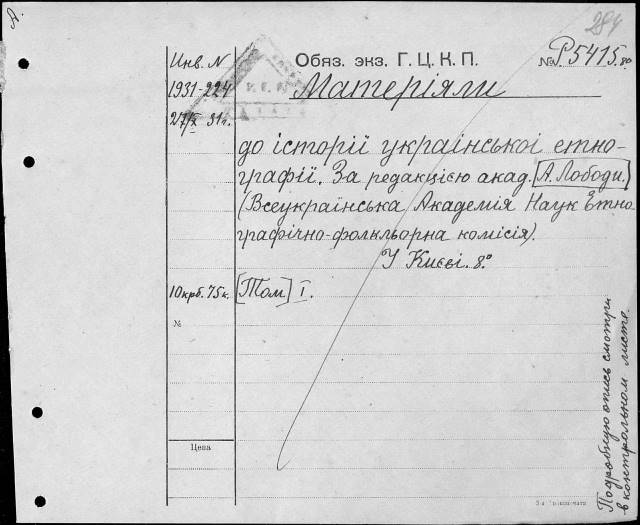 А.
284
Инв. N
Обяз. экз. Г. Ц. К. П.
№ P5415.8º
1931-224
Матеріяли
27/X 31 г.
до історії української етно-
графії. За редакцією акад. [А. Лободи.]
(Всеукраїнська Академія Наук Етно-
графічно-фольклорна комісія).
У Києві. 8º
10 крб. 75 к.
[Том] I.
№
Цена
Подробную опись смотри
в контрольном листе.